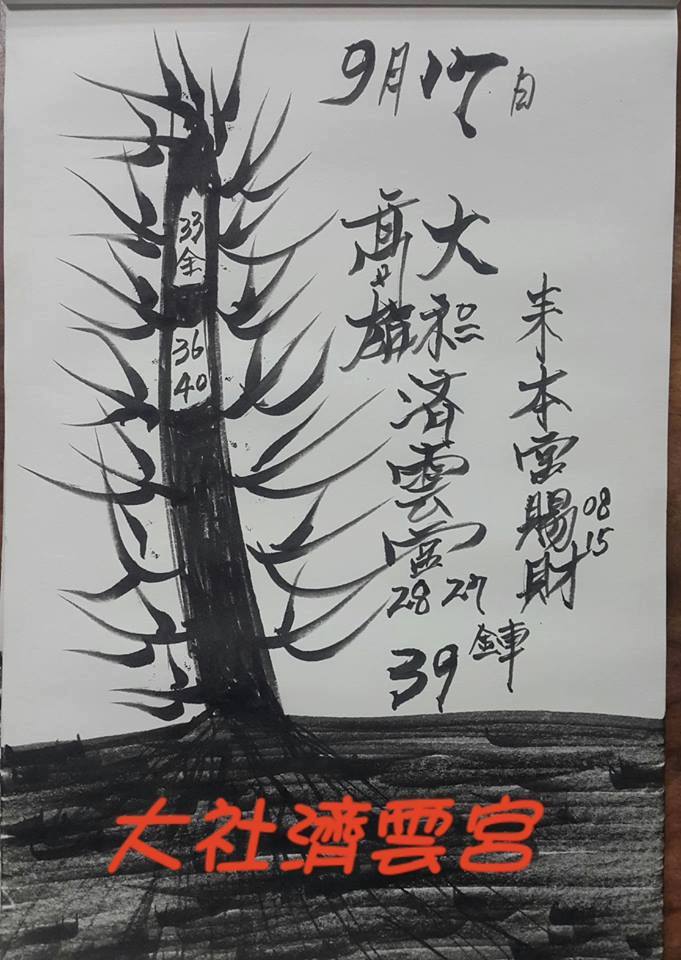 9月17日
高雄
大社濟雲宮
來本宮賜財
08
15
28 27
39 金車
33
全
36
40
大社濟雲宮